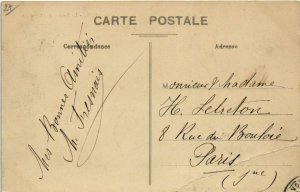 27
CARTE POSTALE
Correspondance
Adresse
Mes Bonnes Amitiés
M. Fresnais
Monsieur & Madame
H. Lebreton
8 Rue du Bouloi
Paris
(1er)